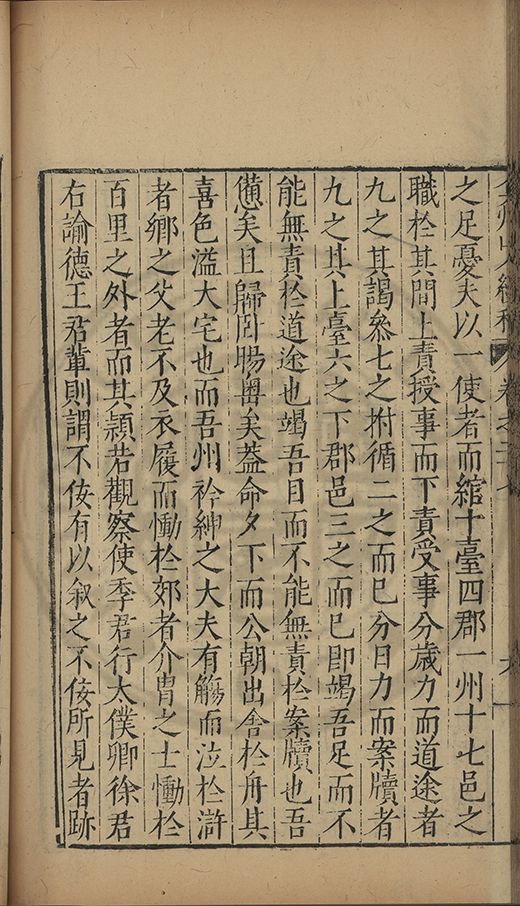 弇州山人續稿 卷之三十七 九
之足憂夫以一使者而綰十臺四郡一州十七邑之
職於其間上責授事而下責受事分歲力而道途者
九之其謁參七之拊循二之而已分日力而案牘者
九之其上臺六之下郡邑三之而已即竭吾足而不
能無責於道途也竭吾目而不能無責於案牘也吾
憊矣且歸臥暘嶴矣蓋命夕下而公朝出舍於舟其
喜色溢大宅也而吾州衿紳之大夫有觴而泣於滸
者鄉之父老不及衣履而慟於郊者介冑之士慟於
百里之外者而其潁若觀察使季君行太僕卿徐君
右諭德王君輩則謂不佞有以敘之不佞所見者跡